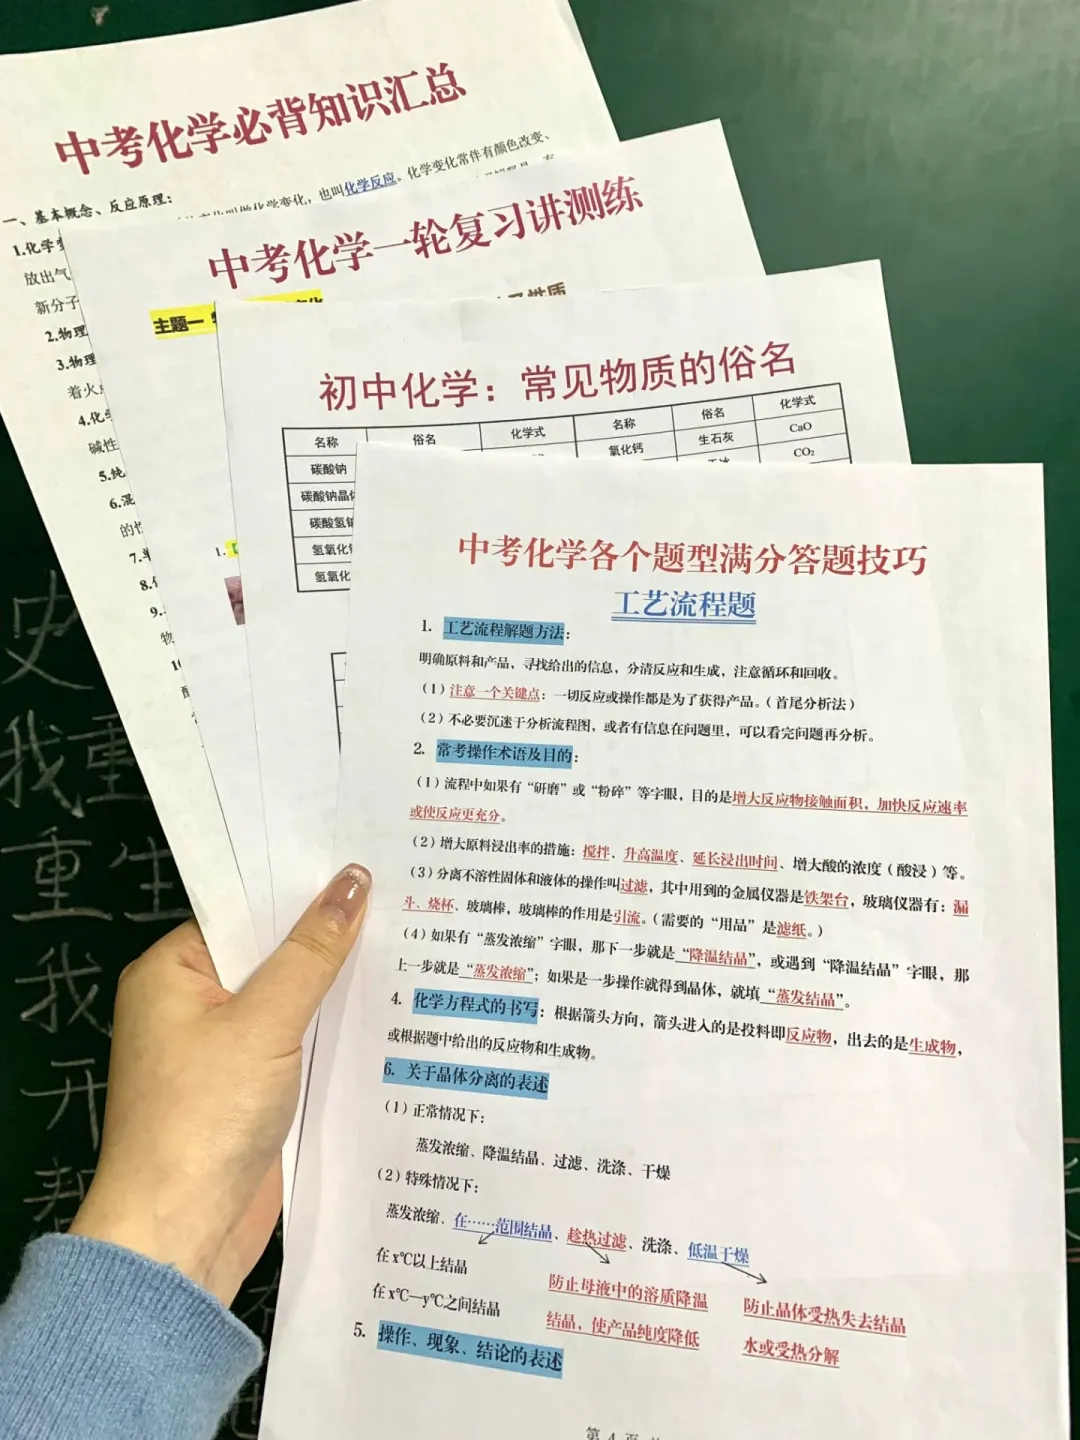 中考化学必背知识汇总
一、基本概念、反应原理：
也叫化学反应。化学变化常伴有颜色改变、
1.化学
放出气
新分子
2.物理
3.物理
着火
4.化学
碱性
5.纯
6.混
的性
7.单
8.
9.
物
10
中考化学一轮复习讲测练
主题一
性质
1.
初中化学：常见物质的俗名
名称 俗名 化学式 名称 俗名 化学式
碳酸钠 氧化钙 生石灰 CaO
碳酸钠晶体 CO₂
碳酸氢钠
氢氧化
氢氧化
中考化学各个题型满分答题技巧
工艺流程题
1. 工艺流程解题方法：
明确原料和产品，寻找给出的信息，分清反应和生成，注意循环和回收。
（1）注意一个关键点：一切反应或操作都是为了获得产品。（首尾分析法）
（2）不必要沉迷于分析流程图，或者有信息在问题里，可以看完问题再分析。
2. 常考操作术语及目的：
（1）流程中如果有“研磨”或“粉碎”等字眼，目的是增大反应物接触面积，加快反应速率
或使反应更充分。
（2）增大原料浸出率的措施：搅拌、升高温度、延长浸出时间、增大酸的浓度（酸浸）等。
（3）分离不溶性固体和液体的操作叫过滤，其中用到的金属仪器是铁架台，玻璃仪器有：漏
斗、烧杯、玻璃棒，玻璃棒的作用是引流。（需要的“用品”是滤纸。）
（4）如果有“蒸发浓缩”字眼，那下一步就是“降温结晶”，或遇到“降温结晶”字眼，那
上一步就是“蒸发浓缩”；如果是一步操作就得到晶体，就填“蒸发结晶”。
4. 化学方程式的书写：根据箭头方向，箭头进入的是投料即反应物，出去的是生成物，
或根据题中给出的反应物和生成物。
6. 关于晶体分离的表述
（1）正常情况下：
蒸发浓缩、降温结晶、过滤、洗涤、干燥
（2）特殊情况下：
蒸发浓缩、在……范围结晶、趁热过滤、洗涤、低温干燥
在x℃以上结晶
在x℃—y℃之间结晶
防止母液中的溶质降温
结晶，使产品纯度降低
防止晶体受热失去结晶
水或受热分解
5. 操作、现象、结论的表述
第 4 页
我重
重生
我
开